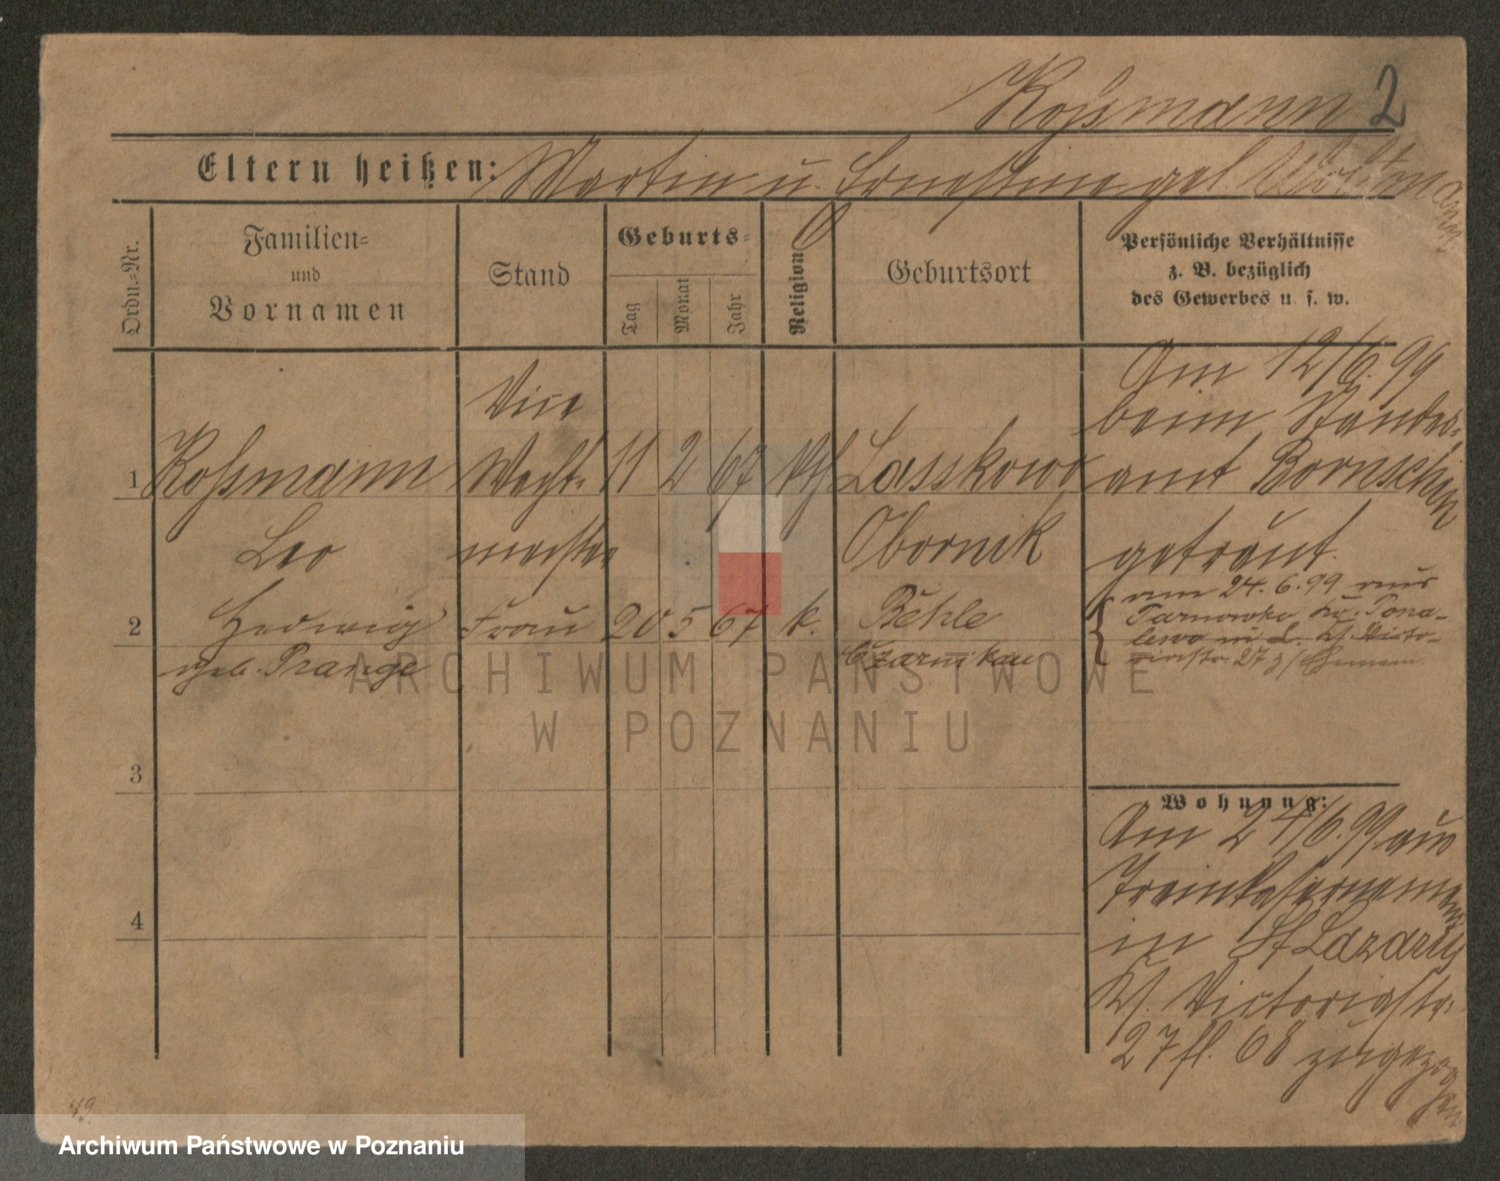 Roßmann 2
Eltern heißen: Martin u. Ernestine geb. Woltmann
Ordn.-Nr.
Familien-
und
Vornamen
Stand
Geburts-
Tag
Monat
Jahr
Religion
Geburtsort
Persönliche Verhältnisse
z. B. bezüglich
des Gewerbes u. s. w.
1 Roßmann
Leo
Vice
Wacht-
meister
11 2 67 kth
Lasskowo
Obornik
Am 12/6. 99
beim Standes-
amt Bornschin
getraut.
2 Hedwig
geb. Prange
Frau
20 5 67 k.
Behle
Czarnikau
am 24. 6. 99 aus
Tarnowko
27
3
4
Wohnung:
Am 24/6. 99. aus
in St Lazarus
Victoriastr.
27 fl. 68 zugezogen
49
ARCHIWUM PAŃSTWOWE
W POZNANIU
Archiwum Państwowe w Poznaniu